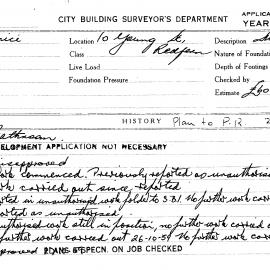 CITY BUILDING SURVEYOR'S DEPARTMENT
APPLICA
YEAR
Location 10 Young St.
Description
Class Redfern
Nature of Foundation
Live Load
Depth of Footings
Foundation Pressure
Checked by
Estimate £60
HISTORY Plan to P.R.
DEVELOPMENT APPLICATION NOT NECESSARY
disapproved
work commenced. Previously reported as unauthoris
work carried out since reported
ted in unauthorised work folder to S.B.I. No further work carri
ported as unauthorised
uthorised work still in position, no further work carried
further work carried out 26-10-59 No further work carr
PLANS & SPECN. ON JOB CHECKED